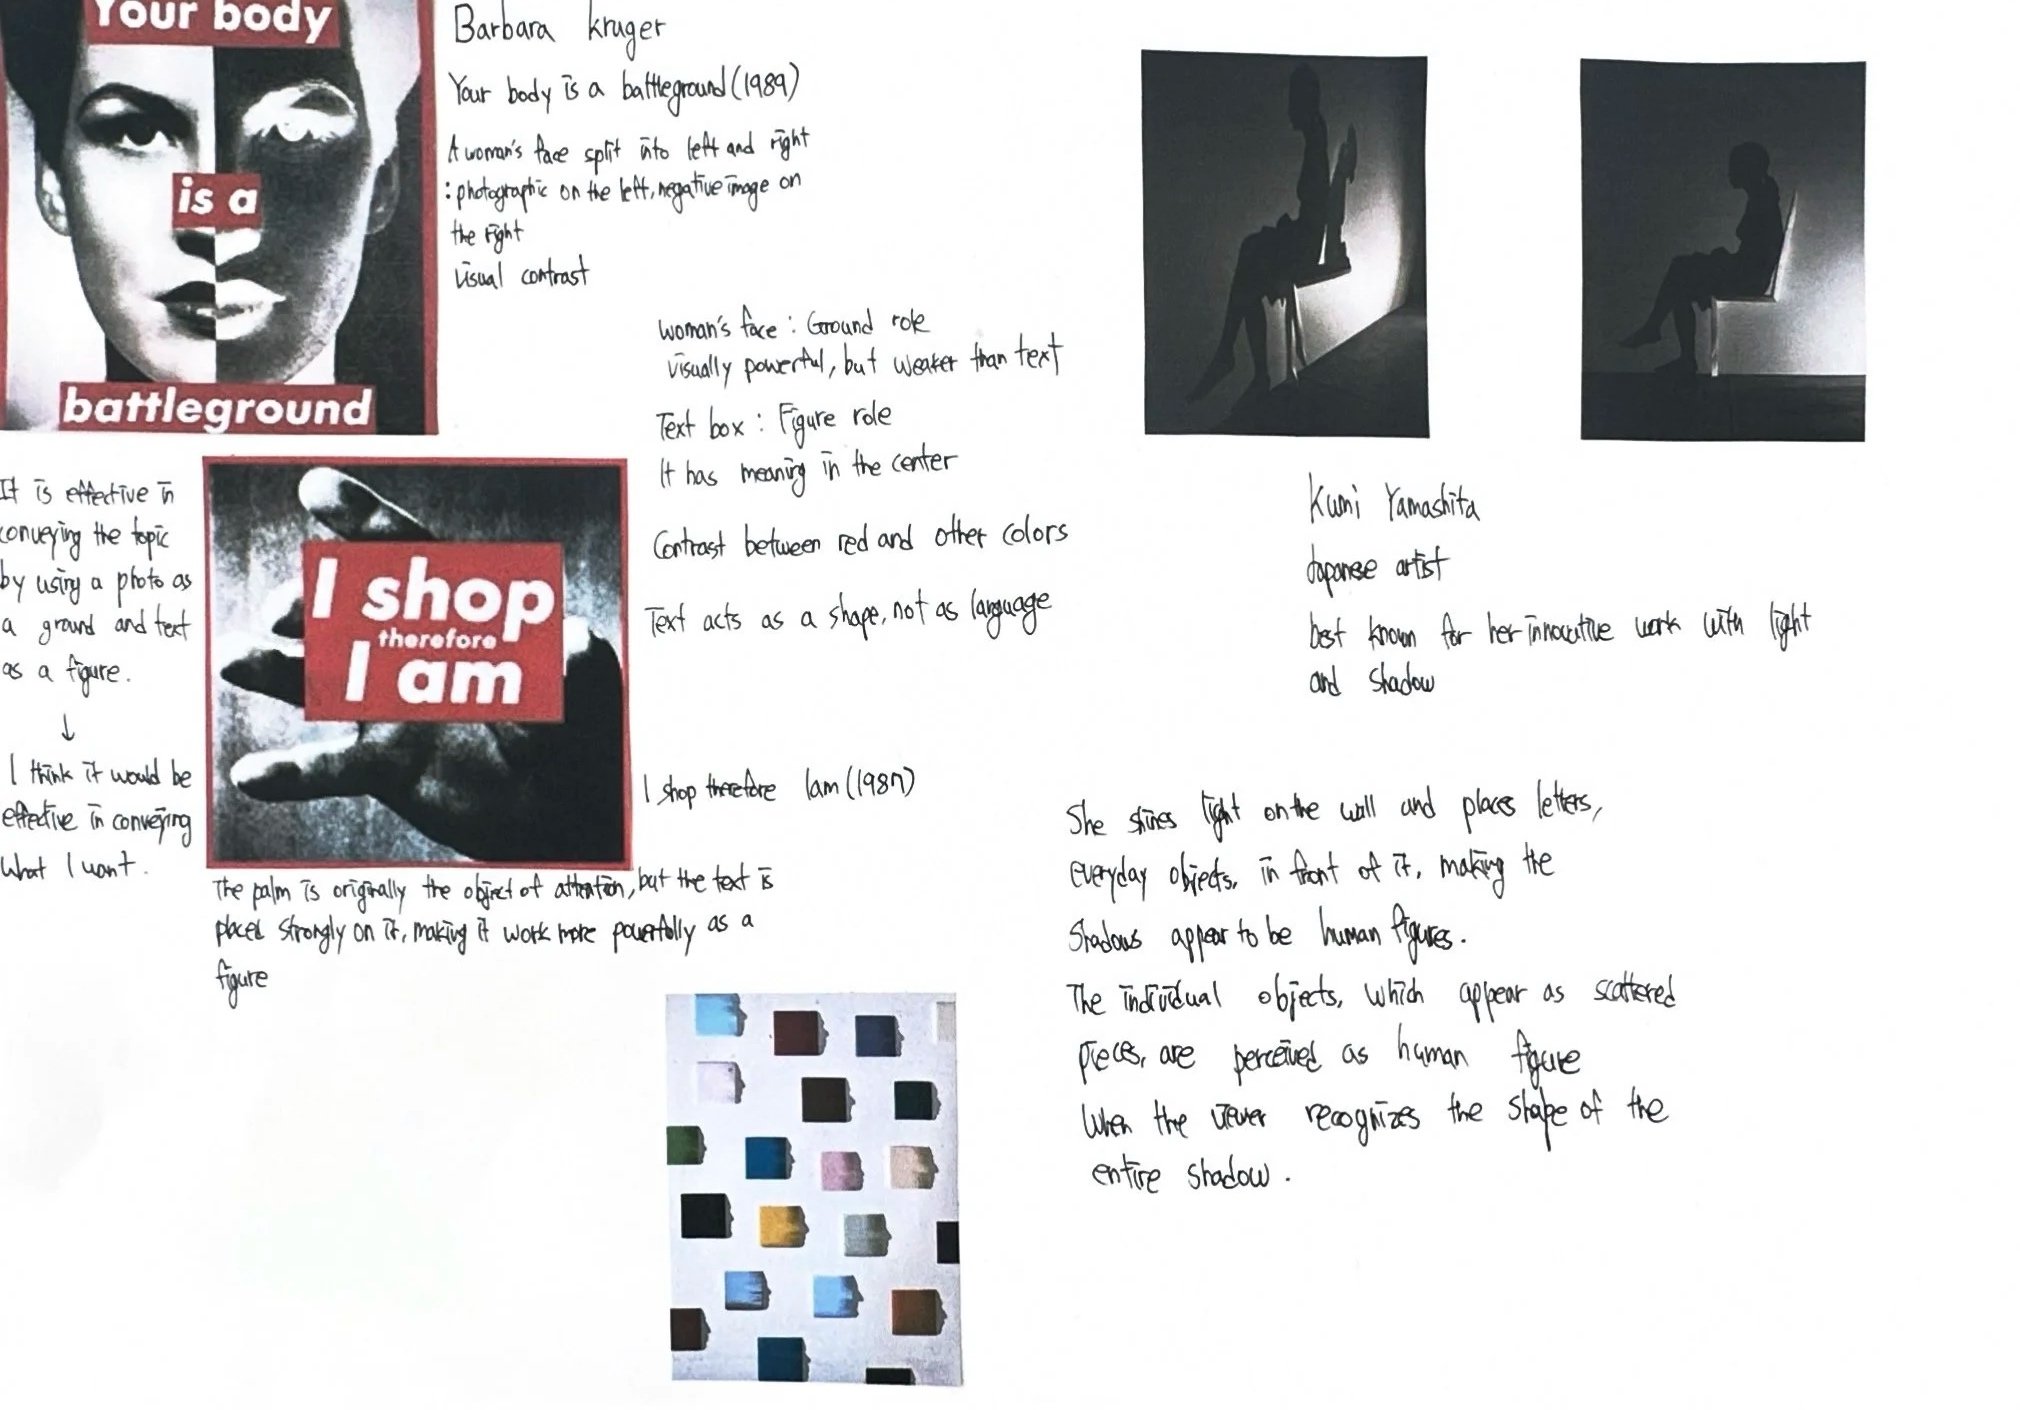 Your body
is a
battleground
Barbara Kruger
Your body is a battleground (1989)
A woman's face split into left and right
: photographic on the left, negative image on
the right
visual contrast
woman's face : Ground role
visually powerful, but weaker than text
Text box : Figure role
It has meaning in the center
Contrast between red and other colors
Text acts as a shape, not as language
It is effective in
conveying the topic
by using a photo as
a ground and text
as a figure.
↓
I think it would be
effective in conveying
what I want.
I shop
therefore
I am
I shop therefore I am (1987)
The palm is originally the object of attention, but the text is
placed strongly on it, making it work more powerfully as a
figure
Kumi Yamashita
Japanese artist
best known for her innovative work with light
and shadow
She shines light on the wall and places letters,
everyday objects, in front of it, making the
shadows appear to be human figures.
The individual objects, which appear as scattered
pieces, are perceived as human figure
when the viewer recognizes the shape of the
entire shadow.